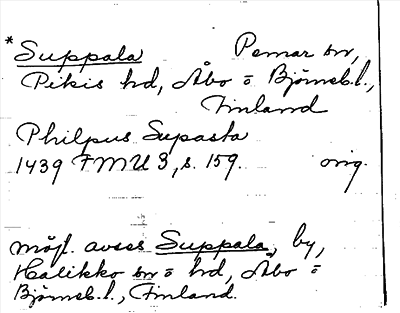 *Suppala Pemar sn,
Pikis hd, Åbo o Björneb. l.,
Finland
Philpus Supasta
1439 FMU 3, s. 159. orig.
möjl. avses Suppala, by,
Halikko sn o hd, Åbo o
Björneb. l., Finland.